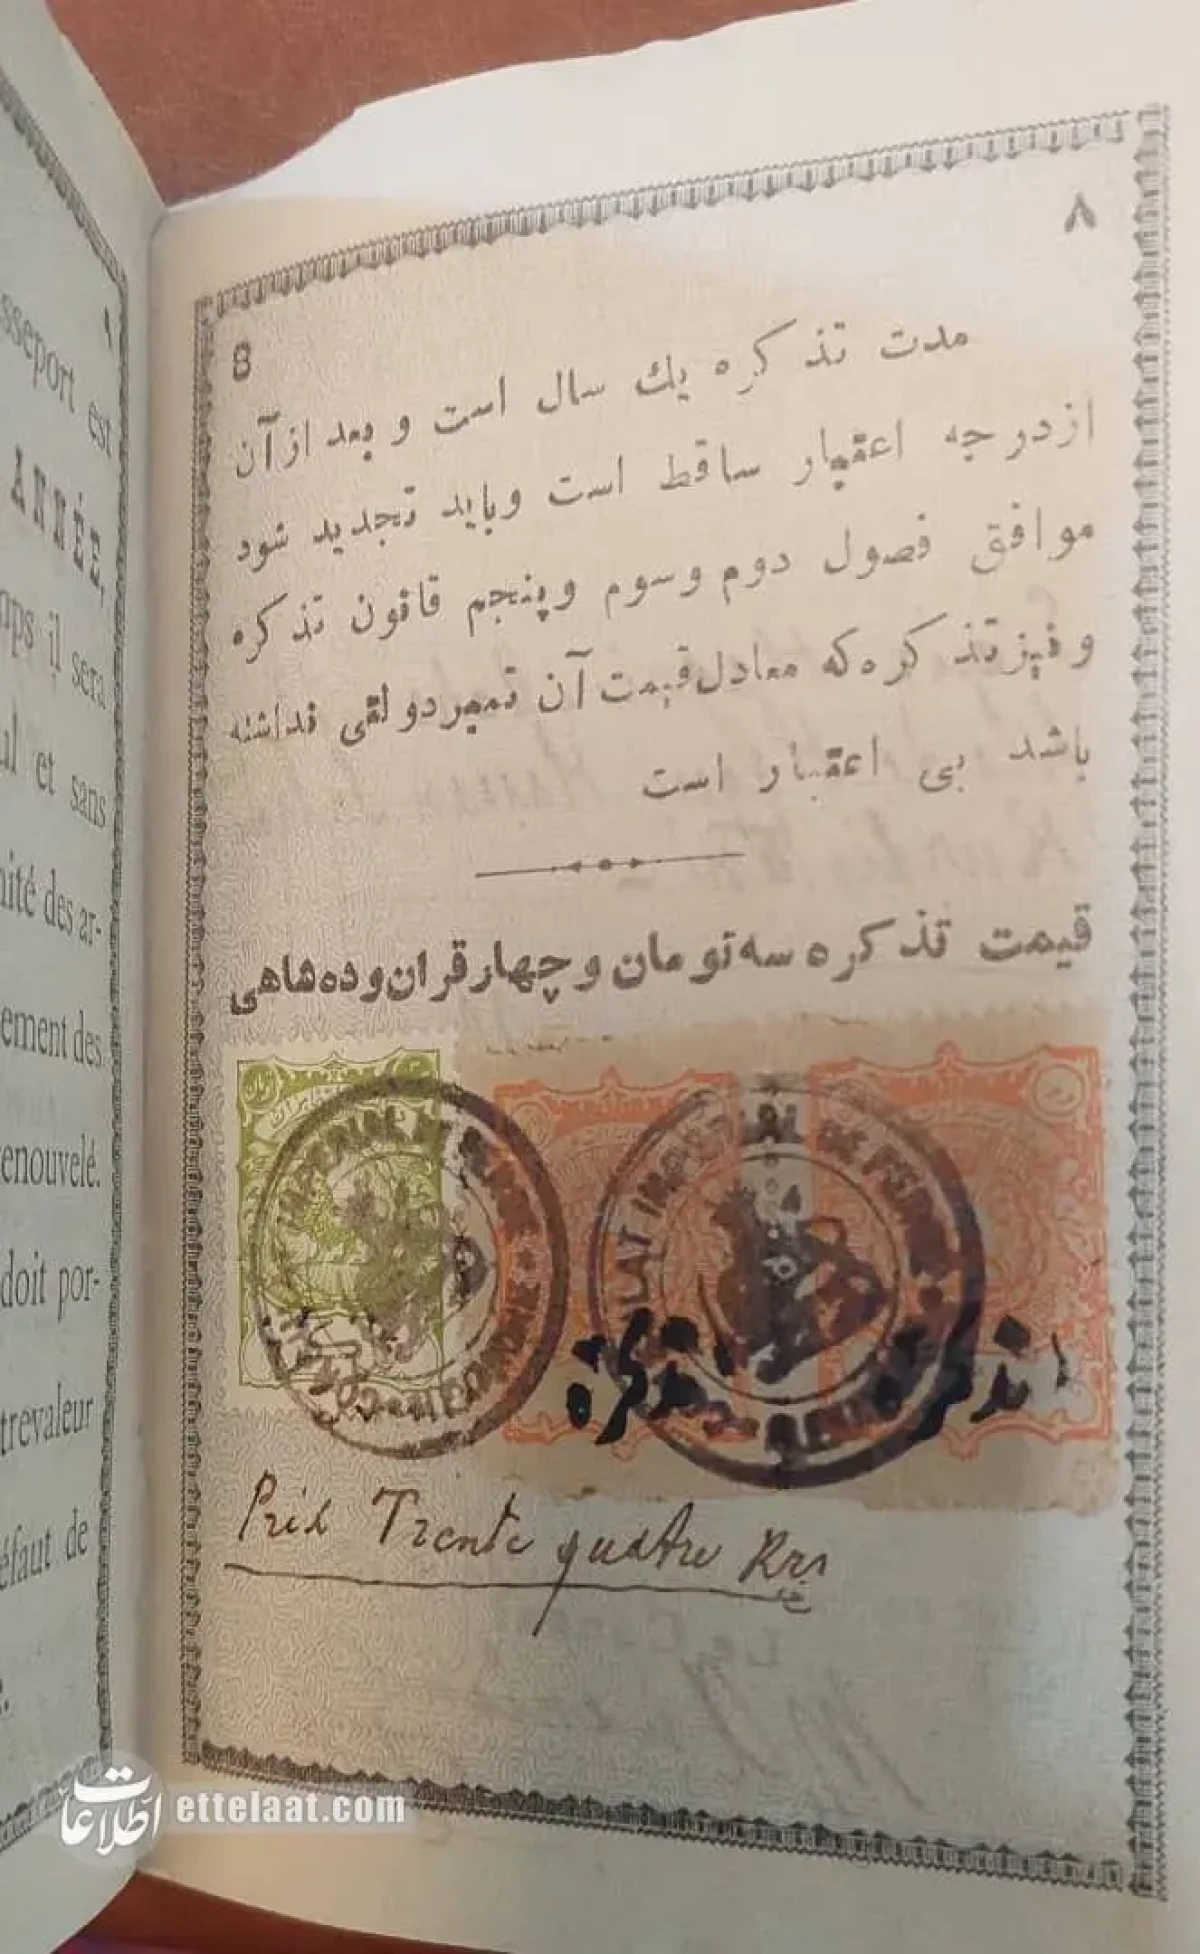 sseport est
ANNÉE,
mps il sera
ul et sans
nité des ar-
ement des
renouvelé.
doit por-
trevaleur
éfaut de
۸
8
مدت تذکره یك سال است و بعد از آن
از درجه اعتبار ساقط است و باید تجدید شود
موافق فصول دوم و سوم و پنجم قانون تذکره
و نیز تذکره که معادل قیمت آن تمبر دولتی نداشته
باشد بی اعتبار است
قیمت تذکره سه تومان و چهار قران و ده شاهی
تذکره
تذکره
Prix Trente quatre Krs
اطلاعات ettelaat.com